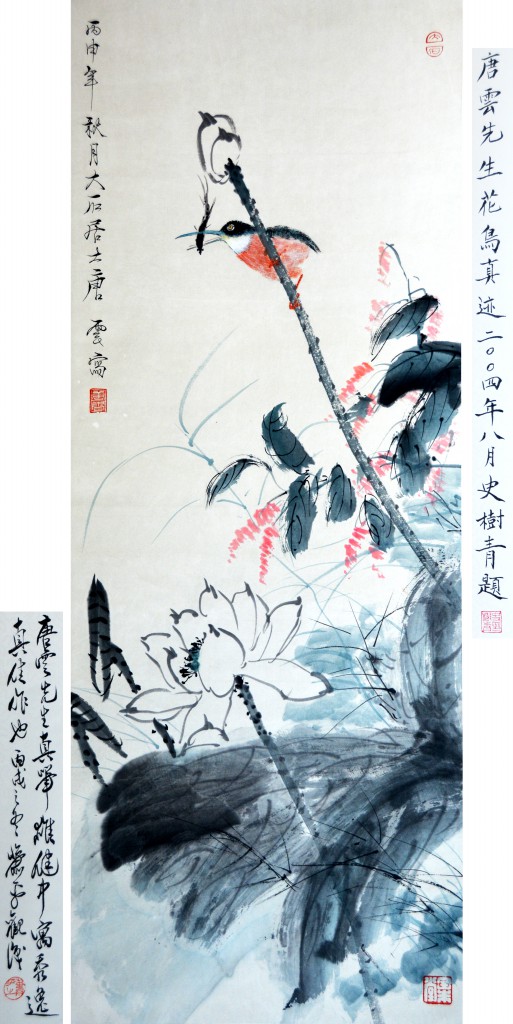 丙申年秋月大石居士唐雲寫
唐雲先生花鳥真迹二〇〇四年八月史樹青題
唐雲先生真筆雄健中寓秀逸
真佳作也丙戌之冬觀識